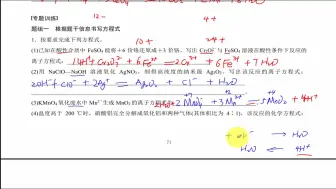 [专题训练]
题组一 根据题干信息书写方程式
1.按要求完成下列方程式。
(1)已知在酸性介质中FeSO₄能将+6价铬还原成+3价铬。写出Cr₂O₇²⁻与FeSO₄溶液在酸性条件下反应的
离子方程式:
14H⁺+Cr₂O₇²⁻+6Fe²⁺=2Cr³⁺+6Fe³⁺+7H₂O
(2)用NaClO—NaOH溶液氧化AgNO₃,制得高纯度的纳米级Ag₂O₂。写出该反应的离子方程式:
2OH⁻+Cl⁻+H₂O
(3)KMnO₄氧化废水中Mn²⁺生成MnO₂的离子方程式
2MnO₄⁻+3Mn²⁺=5MnO₂+4H⁺
(4)温度高于200℃时,硝酸铝完全分解成氧化铝和两种气体(其体积比为4∶1),该反应的化学方程式:
+OH⁻→H₂O
H₂O 4H⁺
71